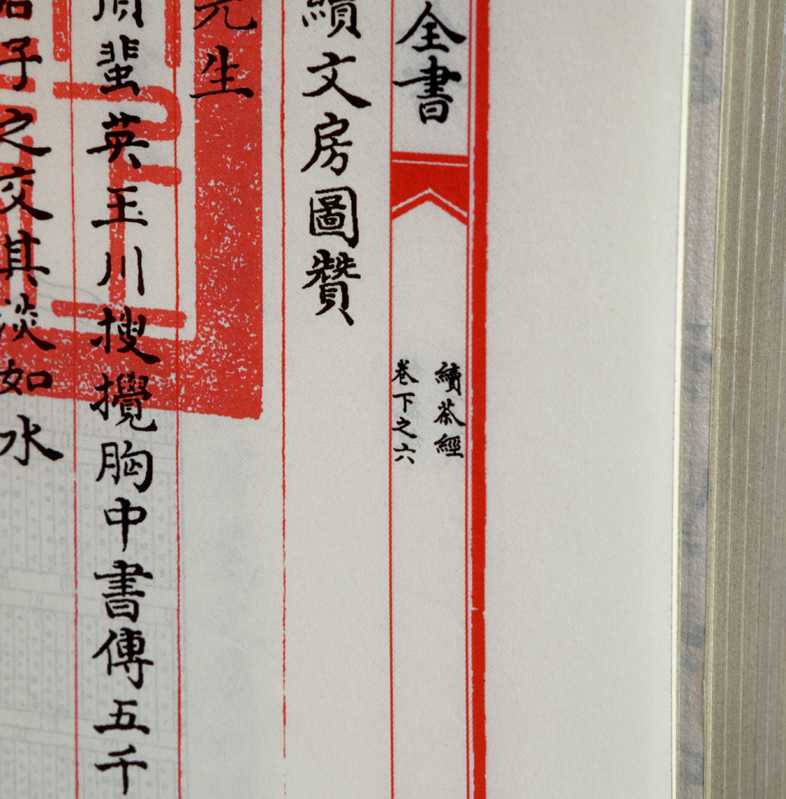 全書
續茶經
卷下之六
續文房圖贊
先生
蜚英玉川搜攪胸中書傳五千
君子之交其淡如水